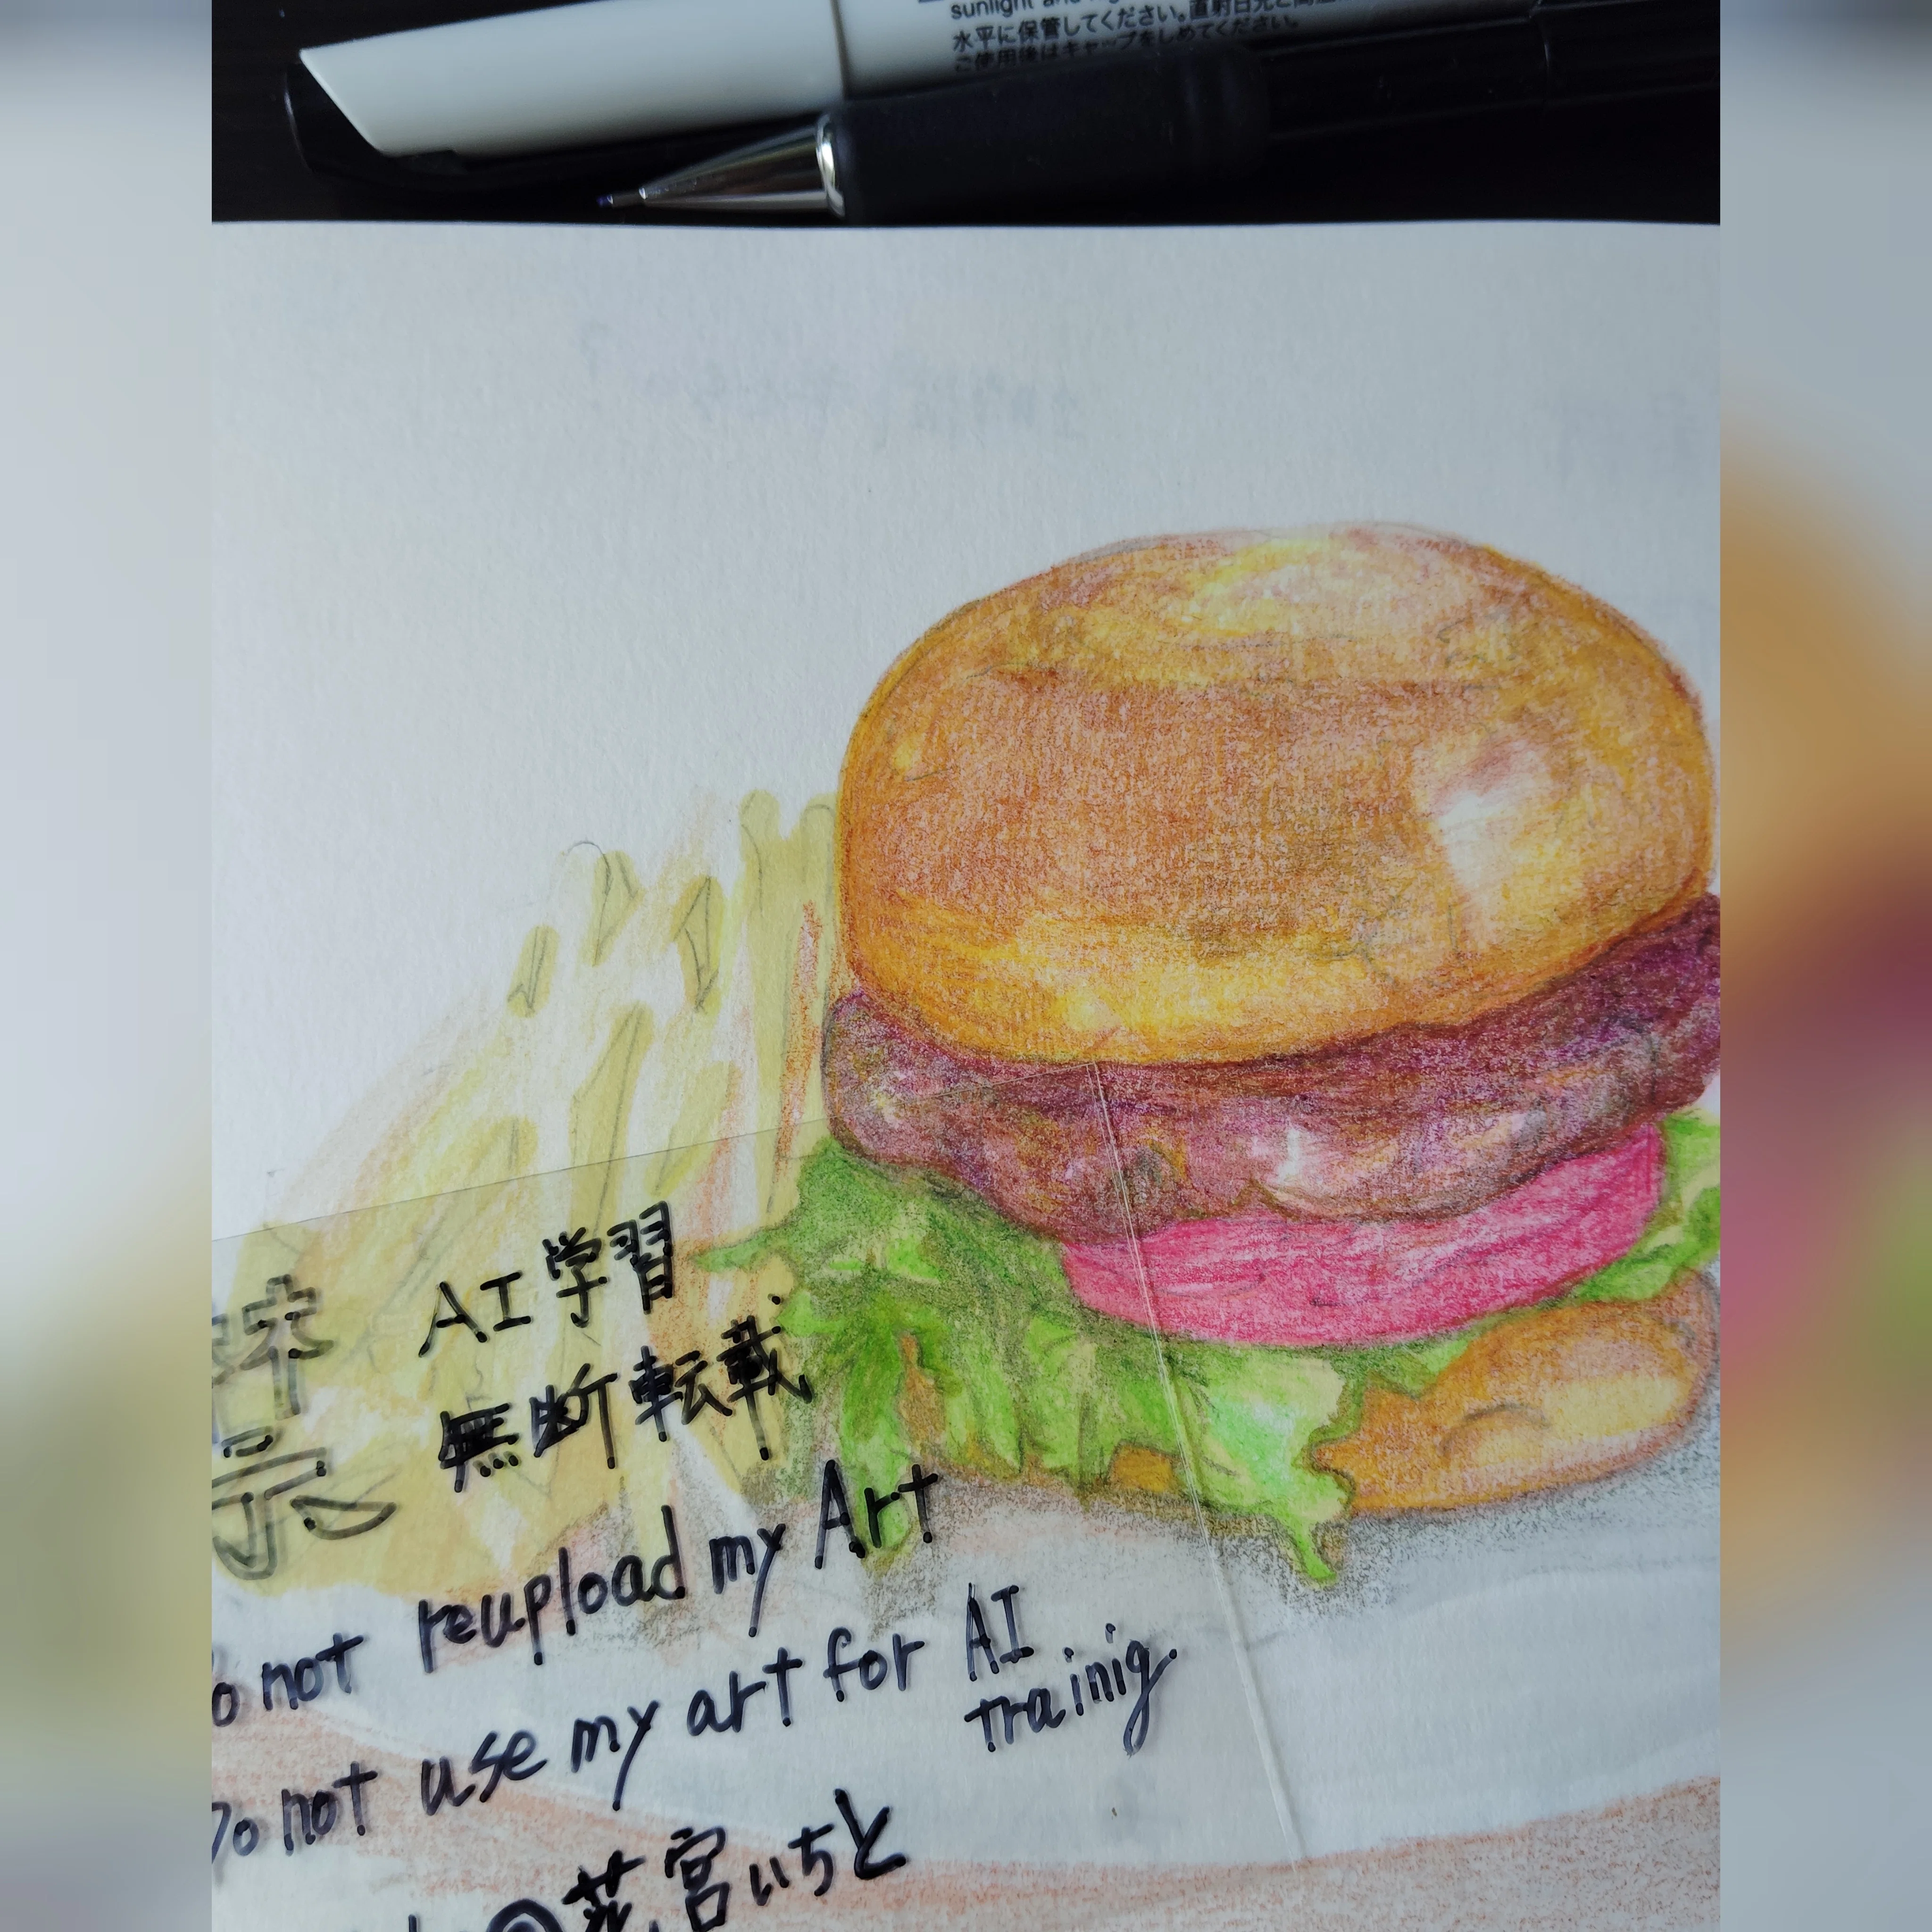 水平に保管してください。直射日光と高温
ご使用後はキャップをしめてください。
禁
AI学習
無断転載
not reupload my Art
Do not use my art for AI
trainig.
@花宮いちと